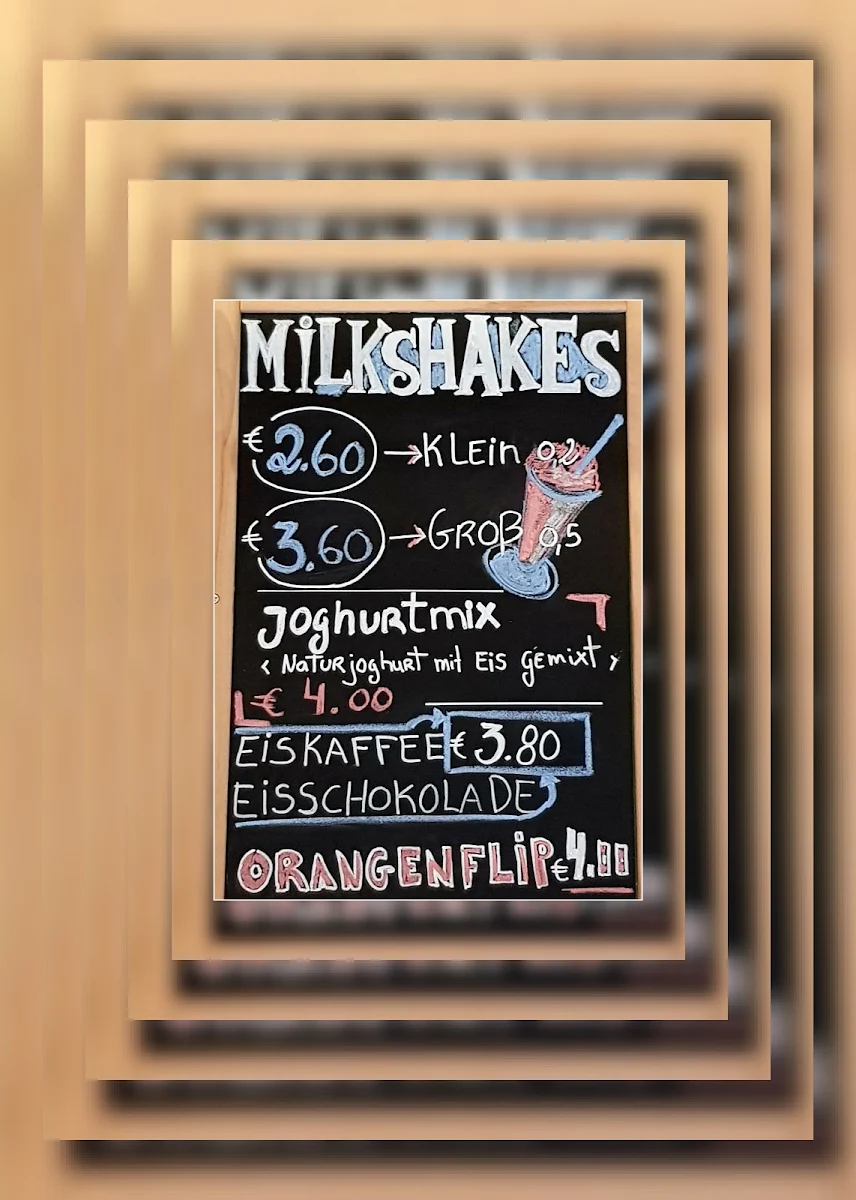 MiLKSHAKES
€ 2.60 → KLEin 0,2
€ 3.60 → GROß 0,5
Joghurtmix
‹ Naturjoghurt mit Eis gemixt ›
€ 4.00
EiSKAFFEE € 3.80
EiSSCHOKOLADE
ORANGENFLiP € 4.00